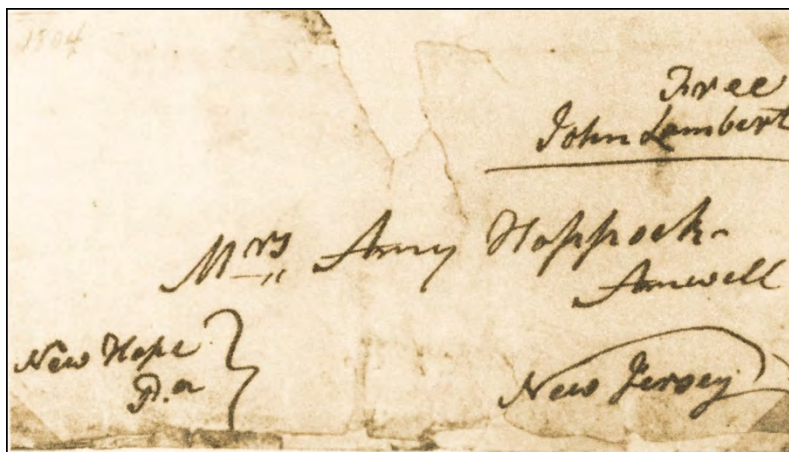 1804
Free
John Lambert
Mrs Amy Hoppock
Amwell
New Hope
Pa
New Jersey